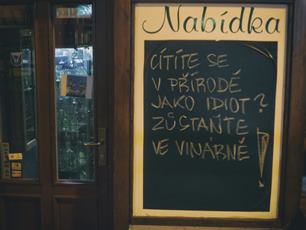 Nabídka
CÍTÍTE SE
V PŘÍRODĚ
JAKO IDIOT?
ZŮSTAŇTE
VE VINARNĚ!